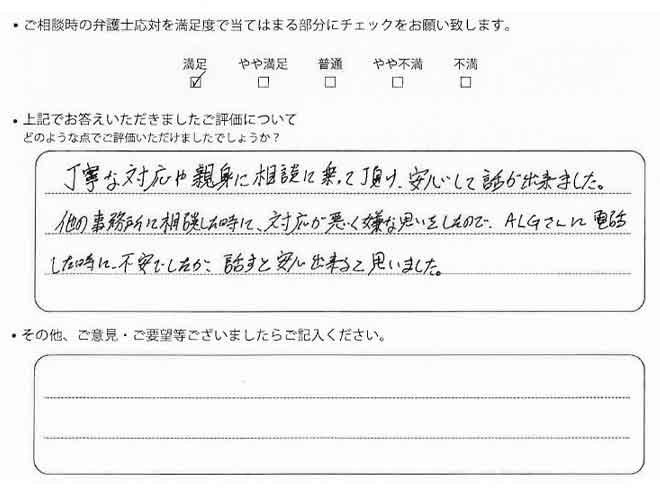 ・ご相談時の弁護士応対を満足度で当てはまる部分にチェックをお願い致します。
満足 やや満足 普通 やや不満 不満
☑ □ □ □ □
・上記でお答えいただきましたご評価について
どのような点でご評価いただけましたでしょうか？
丁寧な対応や親身に相談に乗って頂け、安心して話が出来ました。
他の事務所に相談した時に、対応が悪く嫌な思いをしたので、ALGさんに電話
した時に、不安でしたが、話すと安心出来ると思いました。
・その他、ご意見・ご要望等ございましたらご記入ください。